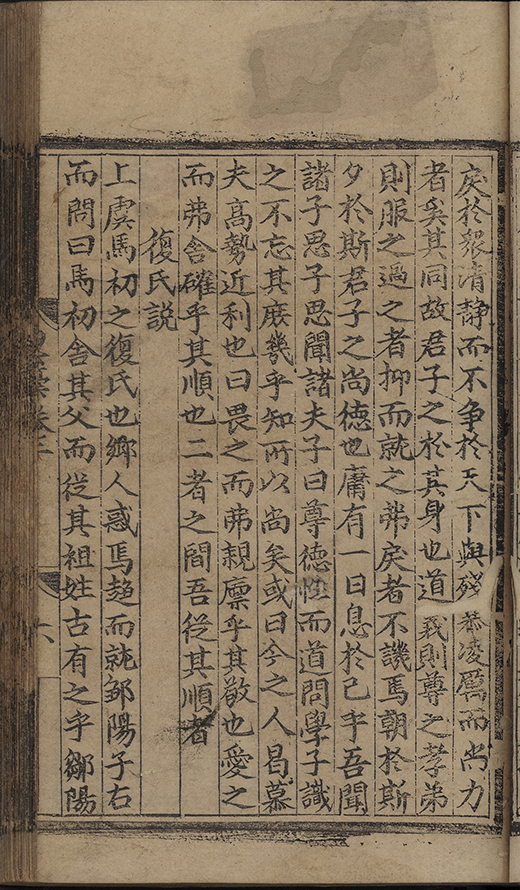 戾於衆清静而不争於天下與殘恭凌厲而尚力
者矣其同故君子之於其身也道義則尊之孝弟
則服之過之者抑而就之弗戾者不譏焉朝於斯
夕於斯君子之尚徳也庸有一日息於己乎吾聞
諸子思子思聞諸夫子曰尊徳性而道問學子識
之不忘其庻㡬乎知所以尚矣或曰今之人曷慕
夫高勢近利也曰畏之而弗親禀乎其敬也愛之
而弗舍確乎其順也二者之間吾從其順者
復氏説
上虞馬初之復氏也鄉人惑焉趋而就鄒陽子右
而問曰馬初舍其父而從其祖姓古有之乎鄒陽
卷三
六